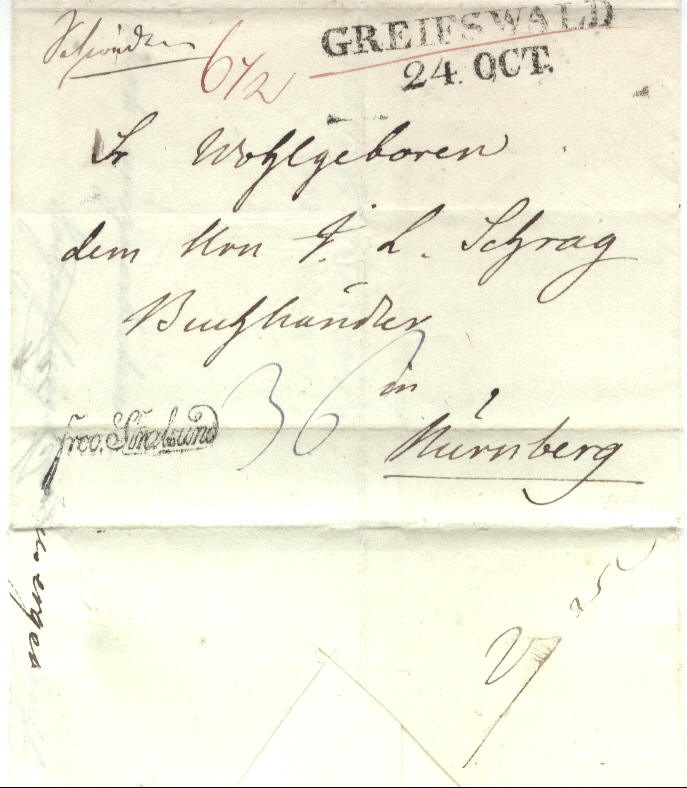 6 1/2
GREIFSWALD
24 OCT.
Sr Wohlgeboren
dem Hrn J. L. Schrag
Buchhändler
in
Nürnberg
36
frco. Stralsund